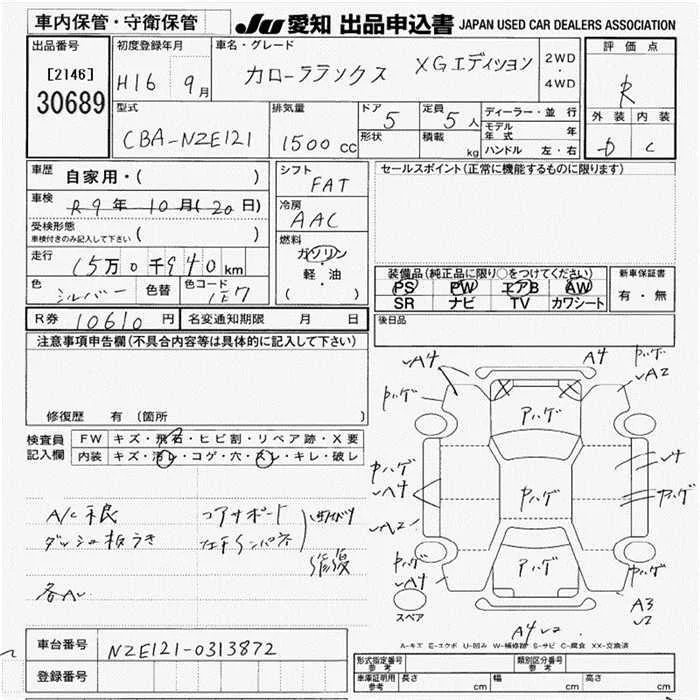 車内保管・守衛保管
JU 愛知 出品申込書 JAPAN USED CAR DEALERS ASSOCIATION
出品番号
[2146]
30689
初度登録年月
H16 9月
車名・グレード
カローラランクス XGエディション
2WD
・
4WD
評価点
R
外装 内装
D C
型式
CBA-NZE121
排気量
1500cc
ドア 5
形状
定員 5人
積載 kg
ディーラー・並行
モデル年式 年
ハンドル 左・右
車歴 自家用・( )
車検 R9年10月(20日)
受検形態
車検付きのみ記入して下さい ( )
走行 15万0千940km
色 シルバー 色替 色コード 1E7
シフト
FAT
冷房
AAC
燃料
ガソリン
・
軽・油
( )
セールスポイント(正常に機能するものに限ります)
装備品(純正品に限り○をつけてください)
PS PW エアB AW
SR ナビ TV カワシート
新車保証書
有・無
後日品
R券 10610円 名変通知期限 月 日
注意事項申告欄(不具合内容等は具体的に記入して下さい)
修復歴 有 (箇所 )
検査員
記入欄
FW キズ・飛石・ヒビ割・リペア跡・X要
内装 キズ・汚レ・コゲ・穴・スレ・キレ・破レ
A/C不良
ダッシュ板うき
コアサポート
修復
✓A4 A4 中ハゲ
中ハゲ ✓A2
Aハゲ
中ハゲ
✓A4
中ハゲ
✓4
中ハゲ
✓A2
中ハゲ
✓A4
Aハゲ
中ハゲ
スペア
A3
✓2
A4 ✓2
A-キズ E-エクボ U-凹み W-補修跡 S-サビ C-腐食 XX-交換済
車台番号 NZE121-0313872
登録番号
形式指定番号
参考
類別区分番号
参考
車庫証明用
参考
長さ cm 幅 cm 高さ cm